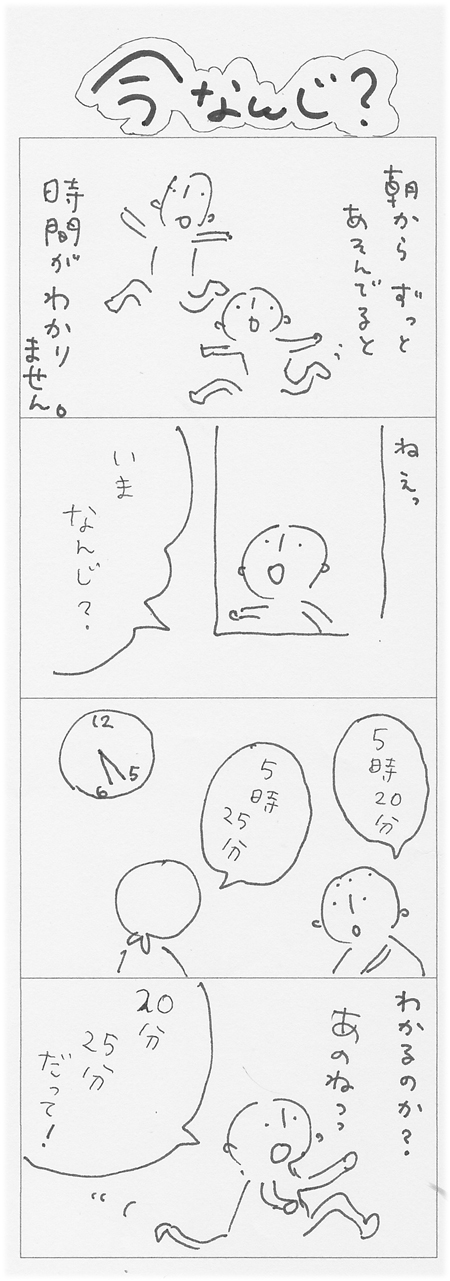 今なんじ？
朝から ずっと
あそんでると
時間が わかり
ません。
ねえっ
いま
なんじ？
5時20分
5時
25分
12
5
6
わかるのか？
あのねっっ
20分
25分
だって！